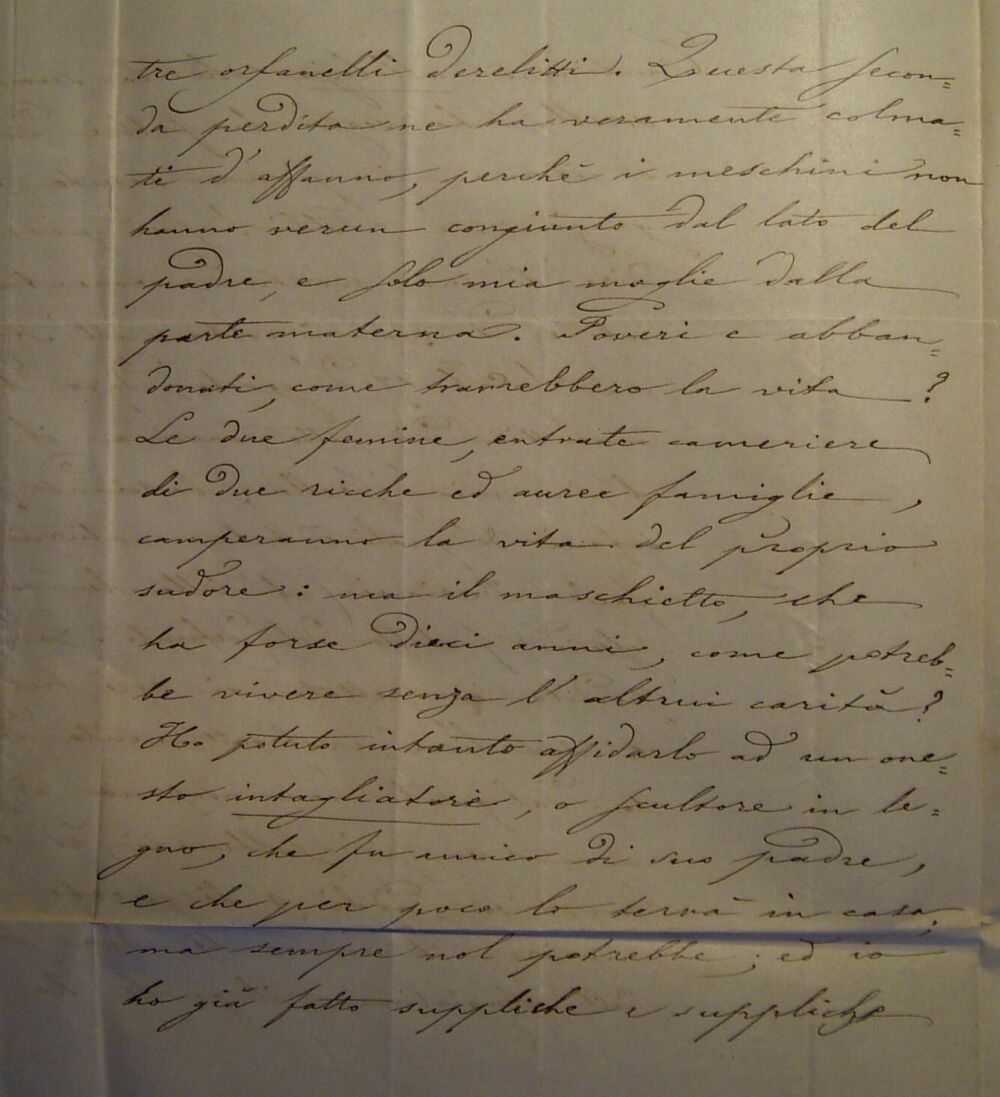 tre orfanelli derelitti. Questa secon=
da perdita ne ha veramente colma=
ti d'affanno, perchè i meschini non
hanno verun congiunto dal lato del
padre, e solo mia moglie dalla
parte materna. Poveri e abban=
donati, come trarrebbero la vita ?
Le due femine, entrate cameriere
di due ricche ed auree famiglie,
camperanno la vita del proprio
sudore : ma il maschietto, che
ha forse dieci anni, come potreb=
be vivere senza l'altrui carità?
Ho potuto intanto affidarlo ad un one=
sto intagliatore, o scultore in le=
gno, che fu amico di suo padre,
e che per poco lo terrà in casa;
ma sempre nol potrebbe ; ed io
ho già fatto suppliche e suppliche